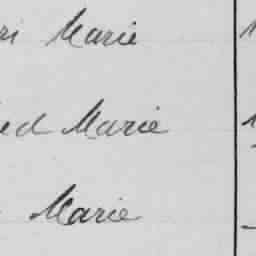 ri Marie
ed Marie
Marie